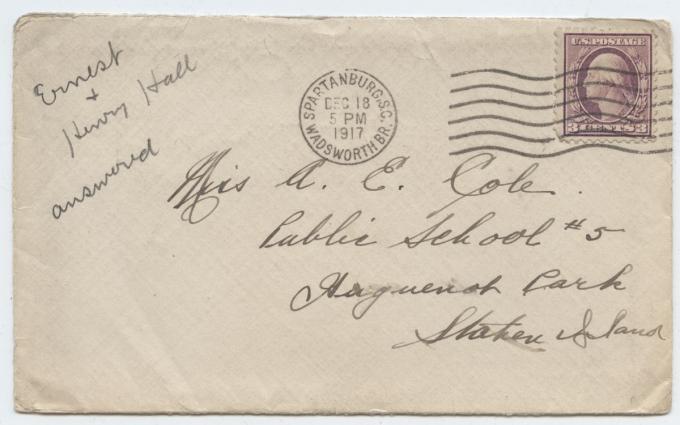 Ernest
+
Henry Hall
answered
SPARTANBURG, S.C.
DEC 18
5 PM
1917
WADSWORTH BR.
U.S. POSTAGE
3 CENTS 3
Miss A. E. Cole.
Public School #5
Huguenot Park
Staten Island